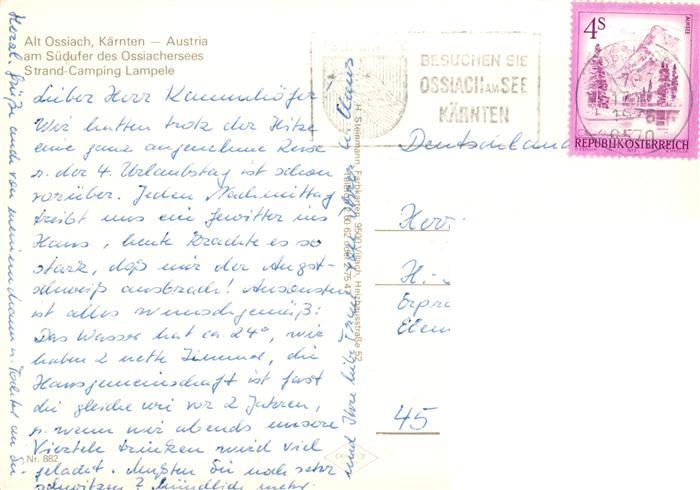 Alt Ossiach, Kärnten — Austria
am Südufer des Ossiachersees
Strand-Camping Lampele
Lieber Herr Kammhöfer
Wir hatten trotz der Hitze
eine ganz angenehme Reise
u. der 4. Urlaubstag ist schon
vorüber. Jeden Nachmittag
treibt uns ein Gewitter ins
Haus, heute krachte es so
stark, daß mir der Angst-
schweiß ausbrach! Ansonsten
ist alles wunschgemäß:
Das Wasser hat ca 24°, wir
haben 2 nette Zimmer, die
Hausgemeinschaft ist fast
die gleiche wie vor 2 Jahren,
u. wenn wir abends unsere
Viertele trinken wird viel
gelacht. Mußten Sie noch sehr
schwitzen? Mündlich mehr.
Herzl. Grüße auch von meinem Mann u. Tochter an Sie
und Ihre liebe Frau
Nr. 882
H. Steinmann, Farbkarten, 9500 Villach, Heizhausstraße 52
BESUCHEN SIE
OSSIACH AM SEE
KÄRNTEN
4S
ALMSEE
REPUBLIK ÖSTERREICH
9570
Deutschland
Herr
H.
45